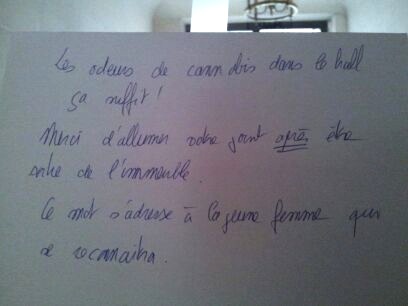 Les odeurs de cannabis dans le hall
ça suffit !
Merci d'allumer votre joint après être
sortie de l'immeuble.
Ce mot s'adresse à la jeune femme qui
se reconnaitra.